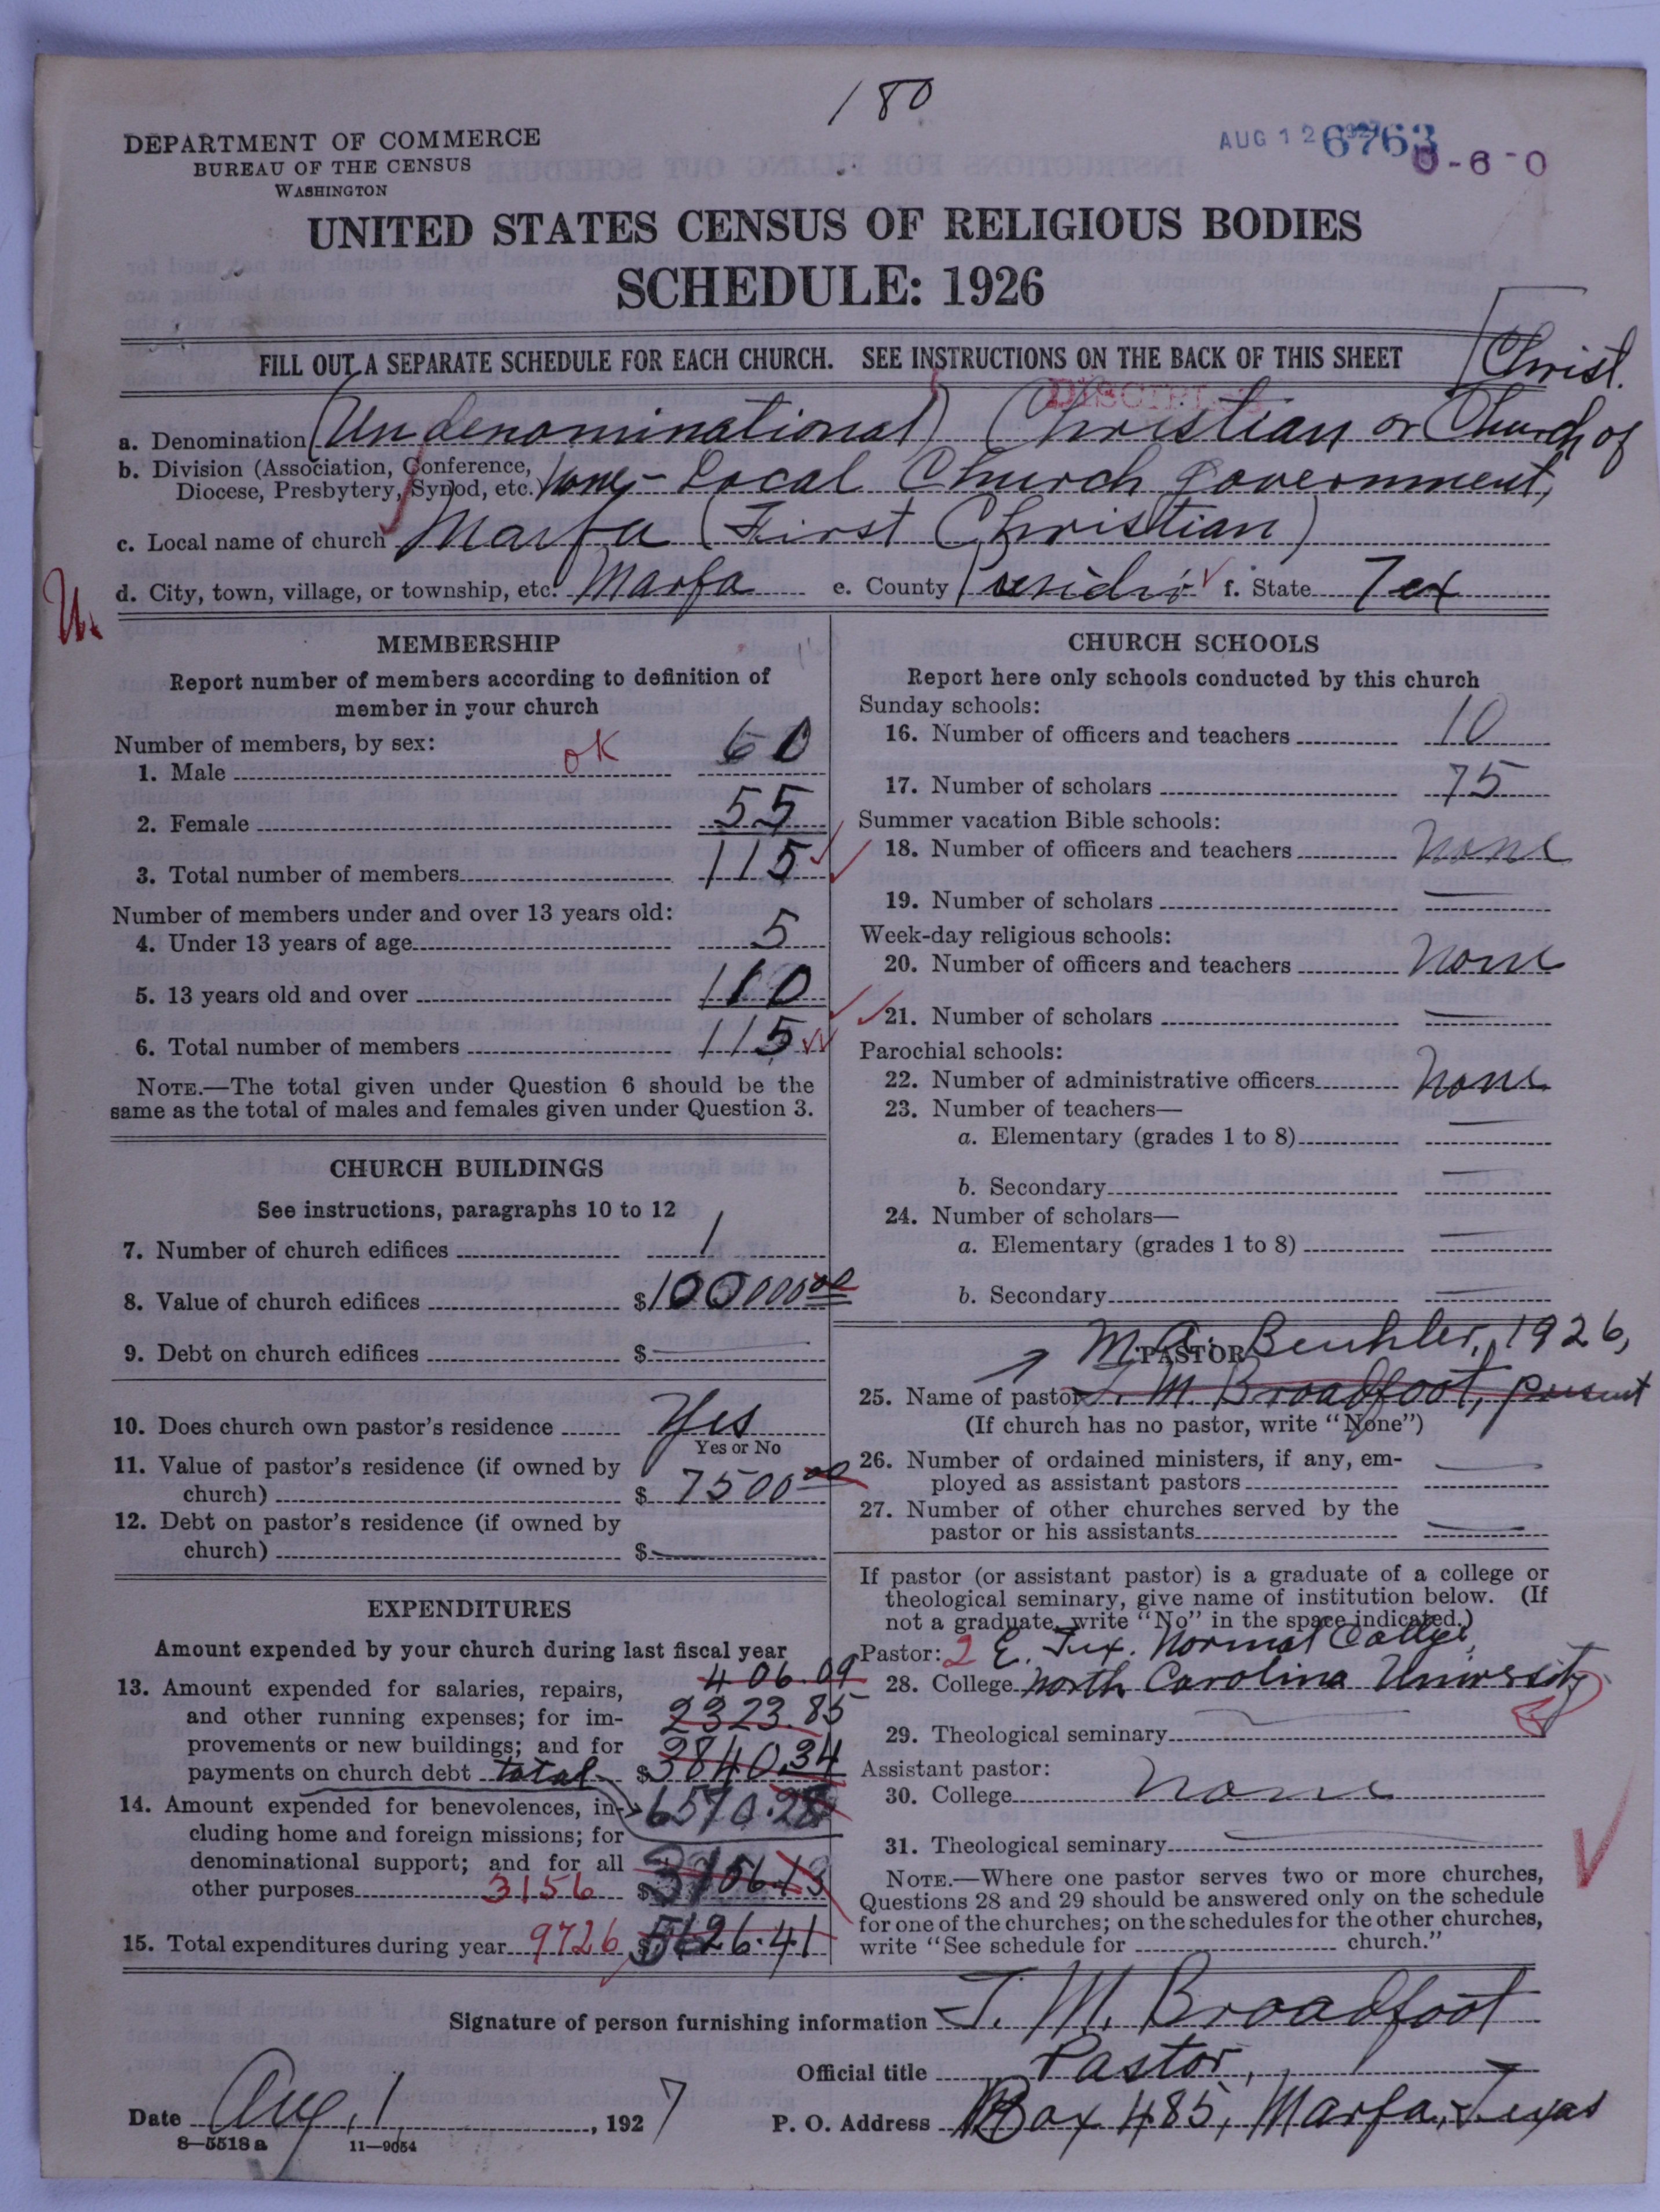 180
DEPARTMENT OF COMMERCE
BUREAU OF THE CENSUS
WASHINGTON
AUG 12 1927
6763
0-6-0
UNITED STATES CENSUS OF RELIGIOUS BODIES
SCHEDULE: 1926
FILL OUT A SEPARATE SCHEDULE FOR EACH CHURCH. SEE INSTRUCTIONS ON THE BACK OF THIS SHEET
DISCIPLES
a. Denomination (Undenominational) Christian or Church of Christ.
b. Division (Association, Conference,
Diocese, Presbytery, Synod, etc.) None - Local Church Government,
c. Local name of church Marfa (First Christian)
d. City, town, village, or township, etc. Marfa e. County Presidio f. State Tex
U.
MEMBERSHIP
Report number of members according to definition of
member in your church
Number of members, by sex:
1. Male OK 60
2. Female 55
3. Total number of members 115
Number of members under and over 13 years old:
4. Under 13 years of age 5
5. 13 years old and over 110
6. Total number of members 115
NOTE.—The total given under Question 6 should be the
same as the total of males and females given under Question 3.
CHURCH BUILDINGS
See instructions, paragraphs 10 to 12
7. Number of church edifices 1
8. Value of church edifices $100000 00
9. Debt on church edifices $ —
10. Does church own pastor's residence Yes
Yes or No
11. Value of pastor's residence (if owned by
church) $ 7500 00
12. Debt on pastor's residence (if owned by
church) $ —
EXPENDITURES
Amount expended by your church during last fiscal year
406.09
13. Amount expended for salaries, repairs,
and other running expenses; for im- 2323.85
provements or new buildings; and for
payments on church debt total $3840.34
14. Amount expended for benevolences, in- 6570.28
cluding home and foreign missions; for
denominational support; and for all
other purposes 3156 $3156.13
15. Total expenditures during year 9726 $ 26.41
CHURCH SCHOOLS
Report here only schools conducted by this church
Sunday schools:
16. Number of officers and teachers 10
17. Number of scholars 75
Summer vacation Bible schools:
18. Number of officers and teachers None
19. Number of scholars —
Week-day religious schools:
20. Number of officers and teachers None
21. Number of scholars —
Parochial schools:
22. Number of administrative officers None
23. Number of teachers—
a. Elementary (grades 1 to 8) —
b. Secondary —
24. Number of scholars—
a. Elementary (grades 1 to 8) —
b. Secondary —
M. A. Beuhler, 1926,
PASTOR
25. Name of pastor T. M. Broadfoot, present
(If church has no pastor, write "None")
26. Number of ordained ministers, if any, em-
ployed as assistant pastors —
27. Number of other churches served by the
pastor or his assistants —
If pastor (or assistant pastor) is a graduate of a college or
theological seminary, give name of institution below. (If
not a graduate, write "No" in the space indicated.)
Pastor: 2 E. Tex. Normal College,
28. College North Carolina University
29. Theological seminary —
Assistant pastor:
30. College None
31. Theological seminary —
NOTE.—Where one pastor serves two or more churches,
Questions 28 and 29 should be answered only on the schedule
for one of the churches; on the schedules for the other churches,
write "See schedule for church."
Signature of person furnishing information T. M. Broadfoot
Official title Pastor,
Date Aug. 1, 1927 P. O. Address Box 485, Marfa, Texas
8—5518 a 11—9054